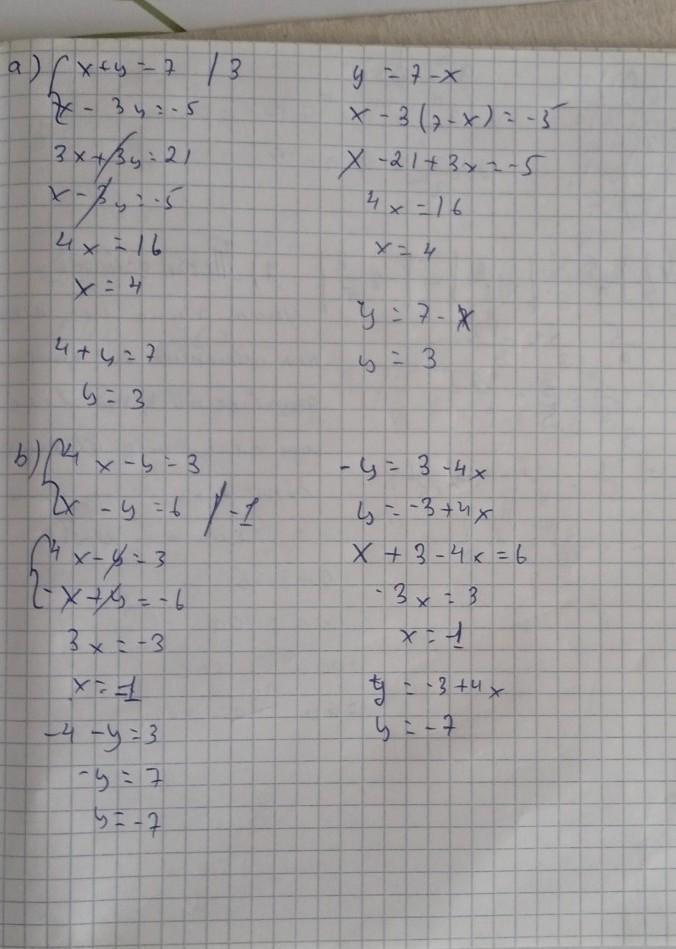 a) { x + y = 7 / 3
x - 3y = -5
3x + 3y = 21
x - 3y = -5
4x = 16
x = 4
4 + y = 7
y = 3
y = 7 - x
x - 3(7 - x) = -5
x - 21 + 3x = -5
4x = 16
x = 4
y = 7 - x
y = 3
b) { 4x - y = 3
x - y = 6 / -1
{ 4x - y = 3
-x + y = -6
3x = -3
x = -1
-4 - y = 3
-y = 7
y = -7
-y = 3 - 4x
y = -3 + 4x
x + 3 - 4x = 6
-3x = 3
x = -1
y = -3 + 4x
y = -7